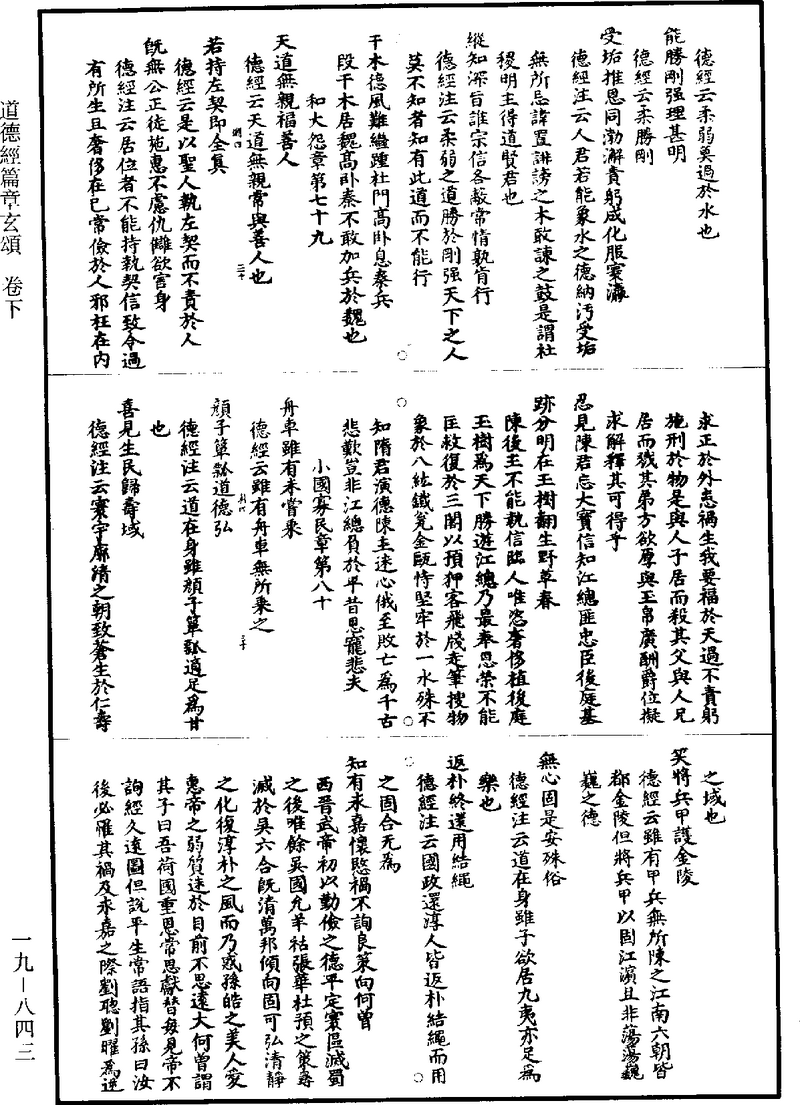 德經云柔弱莫過於水也
能勝剛强理甚明
德經云柔勝剛
受垢推恩同渤澥責躬成化服寰瀛
德經注云人君若能象水之德納汚受垢
無所忌諱置誹謗之木敢諫之鼓是謂社
稷明主得道賢君也
縱知深旨誰宗信各蔽常情孰肯行
德經注云柔弱之道勝於剛强天下之人
莫不知者知有此道而不能行
干木德風難繼踵杜門高卧息秦兵
段干木居魏高卧秦不敢加兵於魏也
和大怨章第七十九
天道無親福善人
德經云天道無親常與善人也
若持左契即全真
德經云是以聖人執左契而不責於人
旣無公正徒施惠不慮仇讎欲害身
德經注云居位者不能持執契信致令過
有所生且奢侈在已常儉於人邪枉在内
求正於外恚禍生我要福於天過不責躬
施刑於物是與人子居而殺其父與人兄
居而戮其弟方欲厚與玉帛廣酬爵位擬
求解釋其可得乎
忍見陳君忘大寳信知江總匪忠臣後庭基
跡分明在玉樹翻生野草春
陳後主不能執信臨人唯恣奢侈植後庭
玉樹爲天下勝遊江總乃最奉恩榮不能
匡救復於三閣以預狎客飛牋走筆搜物
象於八紘鐵瓮金甌恃堅牢於一水殊不
知隋君演德陳主迷心俄至敗亡爲千古
悲歎豈非江總負於平昔恩寵悲夫
小國寡民章第八十
舟車雖有未嘗乗
德經云雖有舟車無所乗之
顔子簞瓢道德弘
德經注云道在身雖顔子簞瓢適足爲甘
也
喜見生民歸壽域
德經注云寰宇廓清之朝致蒼生於仁壽
之域也
笑將兵甲護金陵
德經云雖有甲兵無所陳之江南六朝皆
都金陵但將兵甲以固江濱且非蕩蕩巍
巍之德
無心固是安殊俗
德經注云道在身雖子欲居九夷亦足爲
樂也
返朴終還用結繩
德經注云國政還淳人皆返朴結繩而用
之固合无爲
知有永嘉懷愍禍不詢良策向何曾
西晉武帝初以勤儉之德平定寰區滅蜀
之後唯餘吳國允羊祜張華杜預之策尋
滅於吳六合旣清萬邦傾向固可弘清靜
之化復淳朴之風而乃惑孫皓之美人愛
惠帝之弱質迷於目前不思遠大何曾謂
其子曰吾荷國重恩常思獻替每見帝不
詢經久遠圖但說平生常語指其孫曰汝
後必罹其禍及永嘉之際劉聰劉曜爲逆
道德經篇章玄頌 卷下
一九—八四三